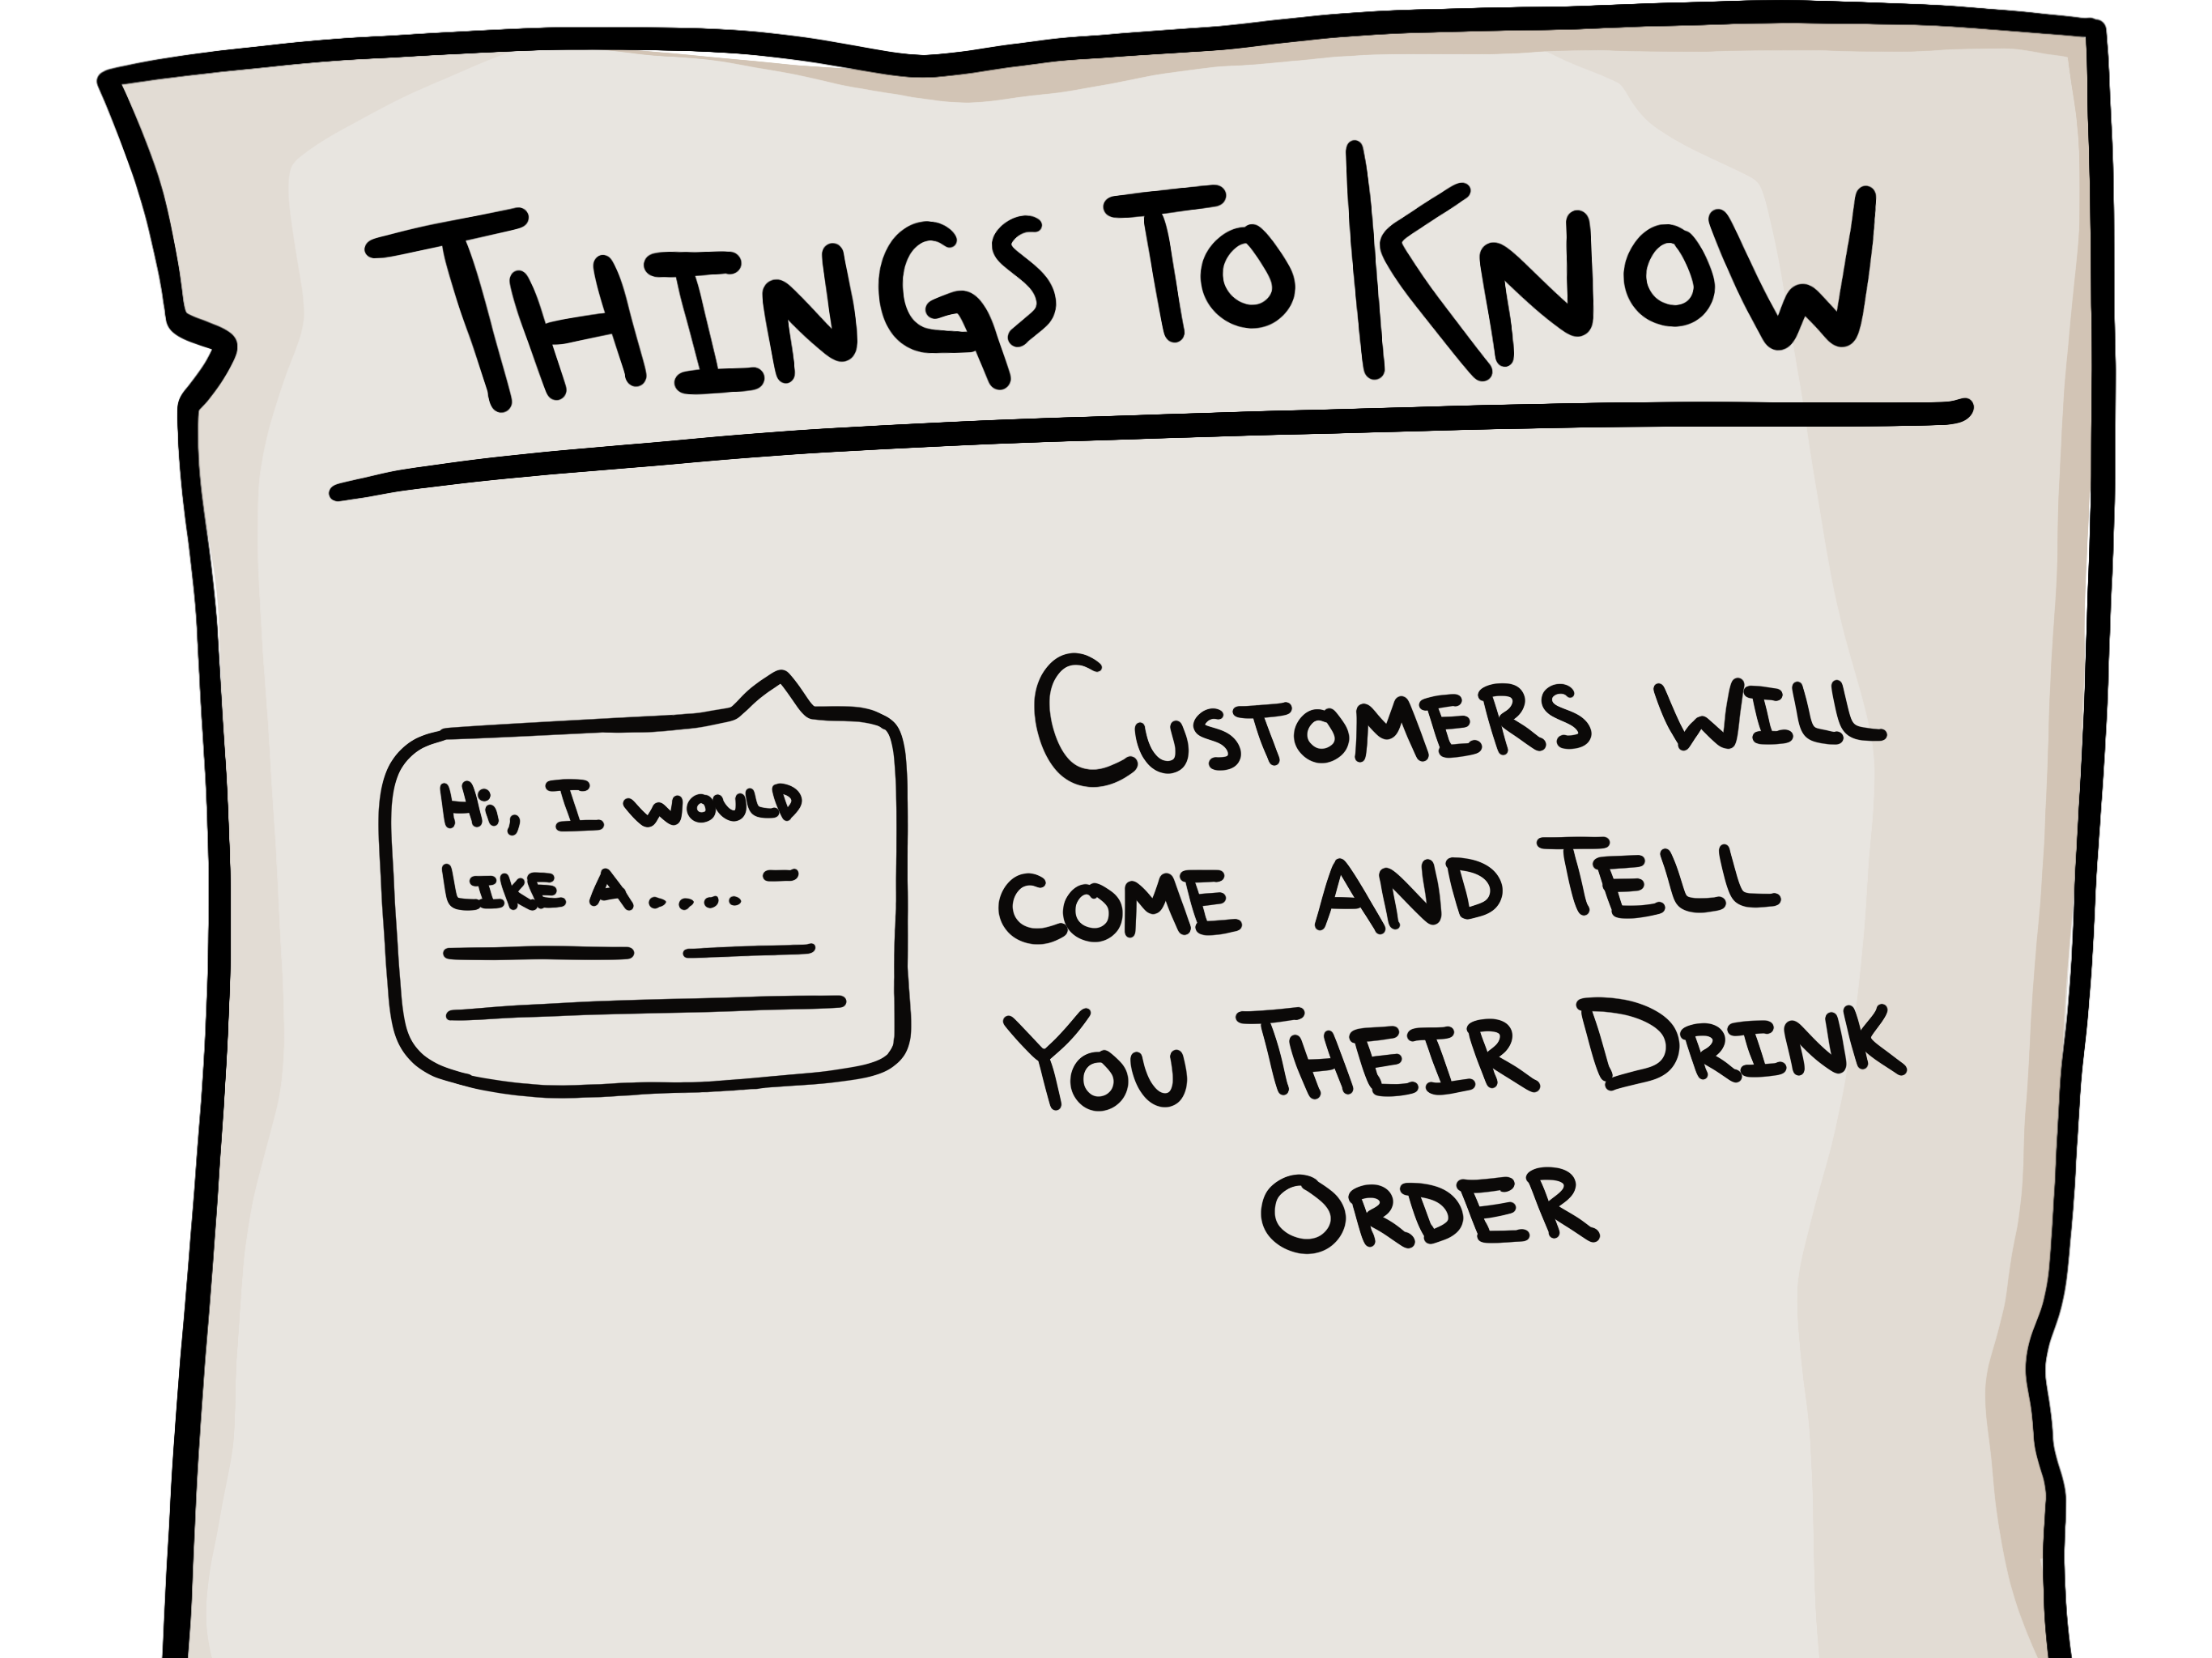 THINGS TO KNOW
Hi, I WOULD
LIKE A....
CUSTOMERS WILL
COME AND TELL
YOU THEIR DRINK
ORDER